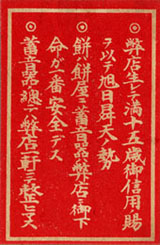 ◎弊店生レテ満十五歳御信用賜
ヲ以テ旭日昇天ノ勢
◎餅ハ餅屋ニ蓄音器ハ弊店ニ御下
命ガ一番安全デス
◎蓄音器ハ総テ弊店一軒ニテ整ヒマス